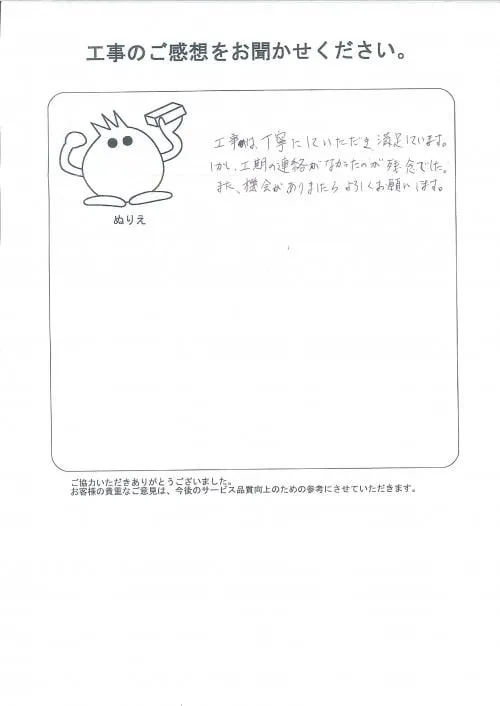 工事のご感想をお聞かせください。
工事は、丁寧にしていただき満足しています。
しかし、工期の連絡がなかったのが残念でした。
また、機会がありましたらよろしくお願いします。
ぬりえ
ご協力いただきありがとうございました。
お客様の貴重なご意見は、今後のサービス品質向上のための参考にさせていただきます。